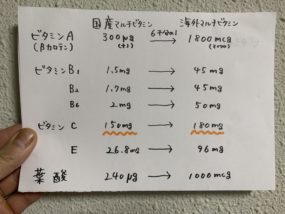 国産マルチビタミン 海外マルチビタミン
ビタミンA 300μg → 1800mcg
(βカロテン)
ビタミンB1 1.5mg → 45mg
B2 1.7mg → 45mg
B6 2mg → 50mg
ビタミンC 150mg → 180mg
E 26.8mg → 96mg
葉酸 240μg → 1000mcg